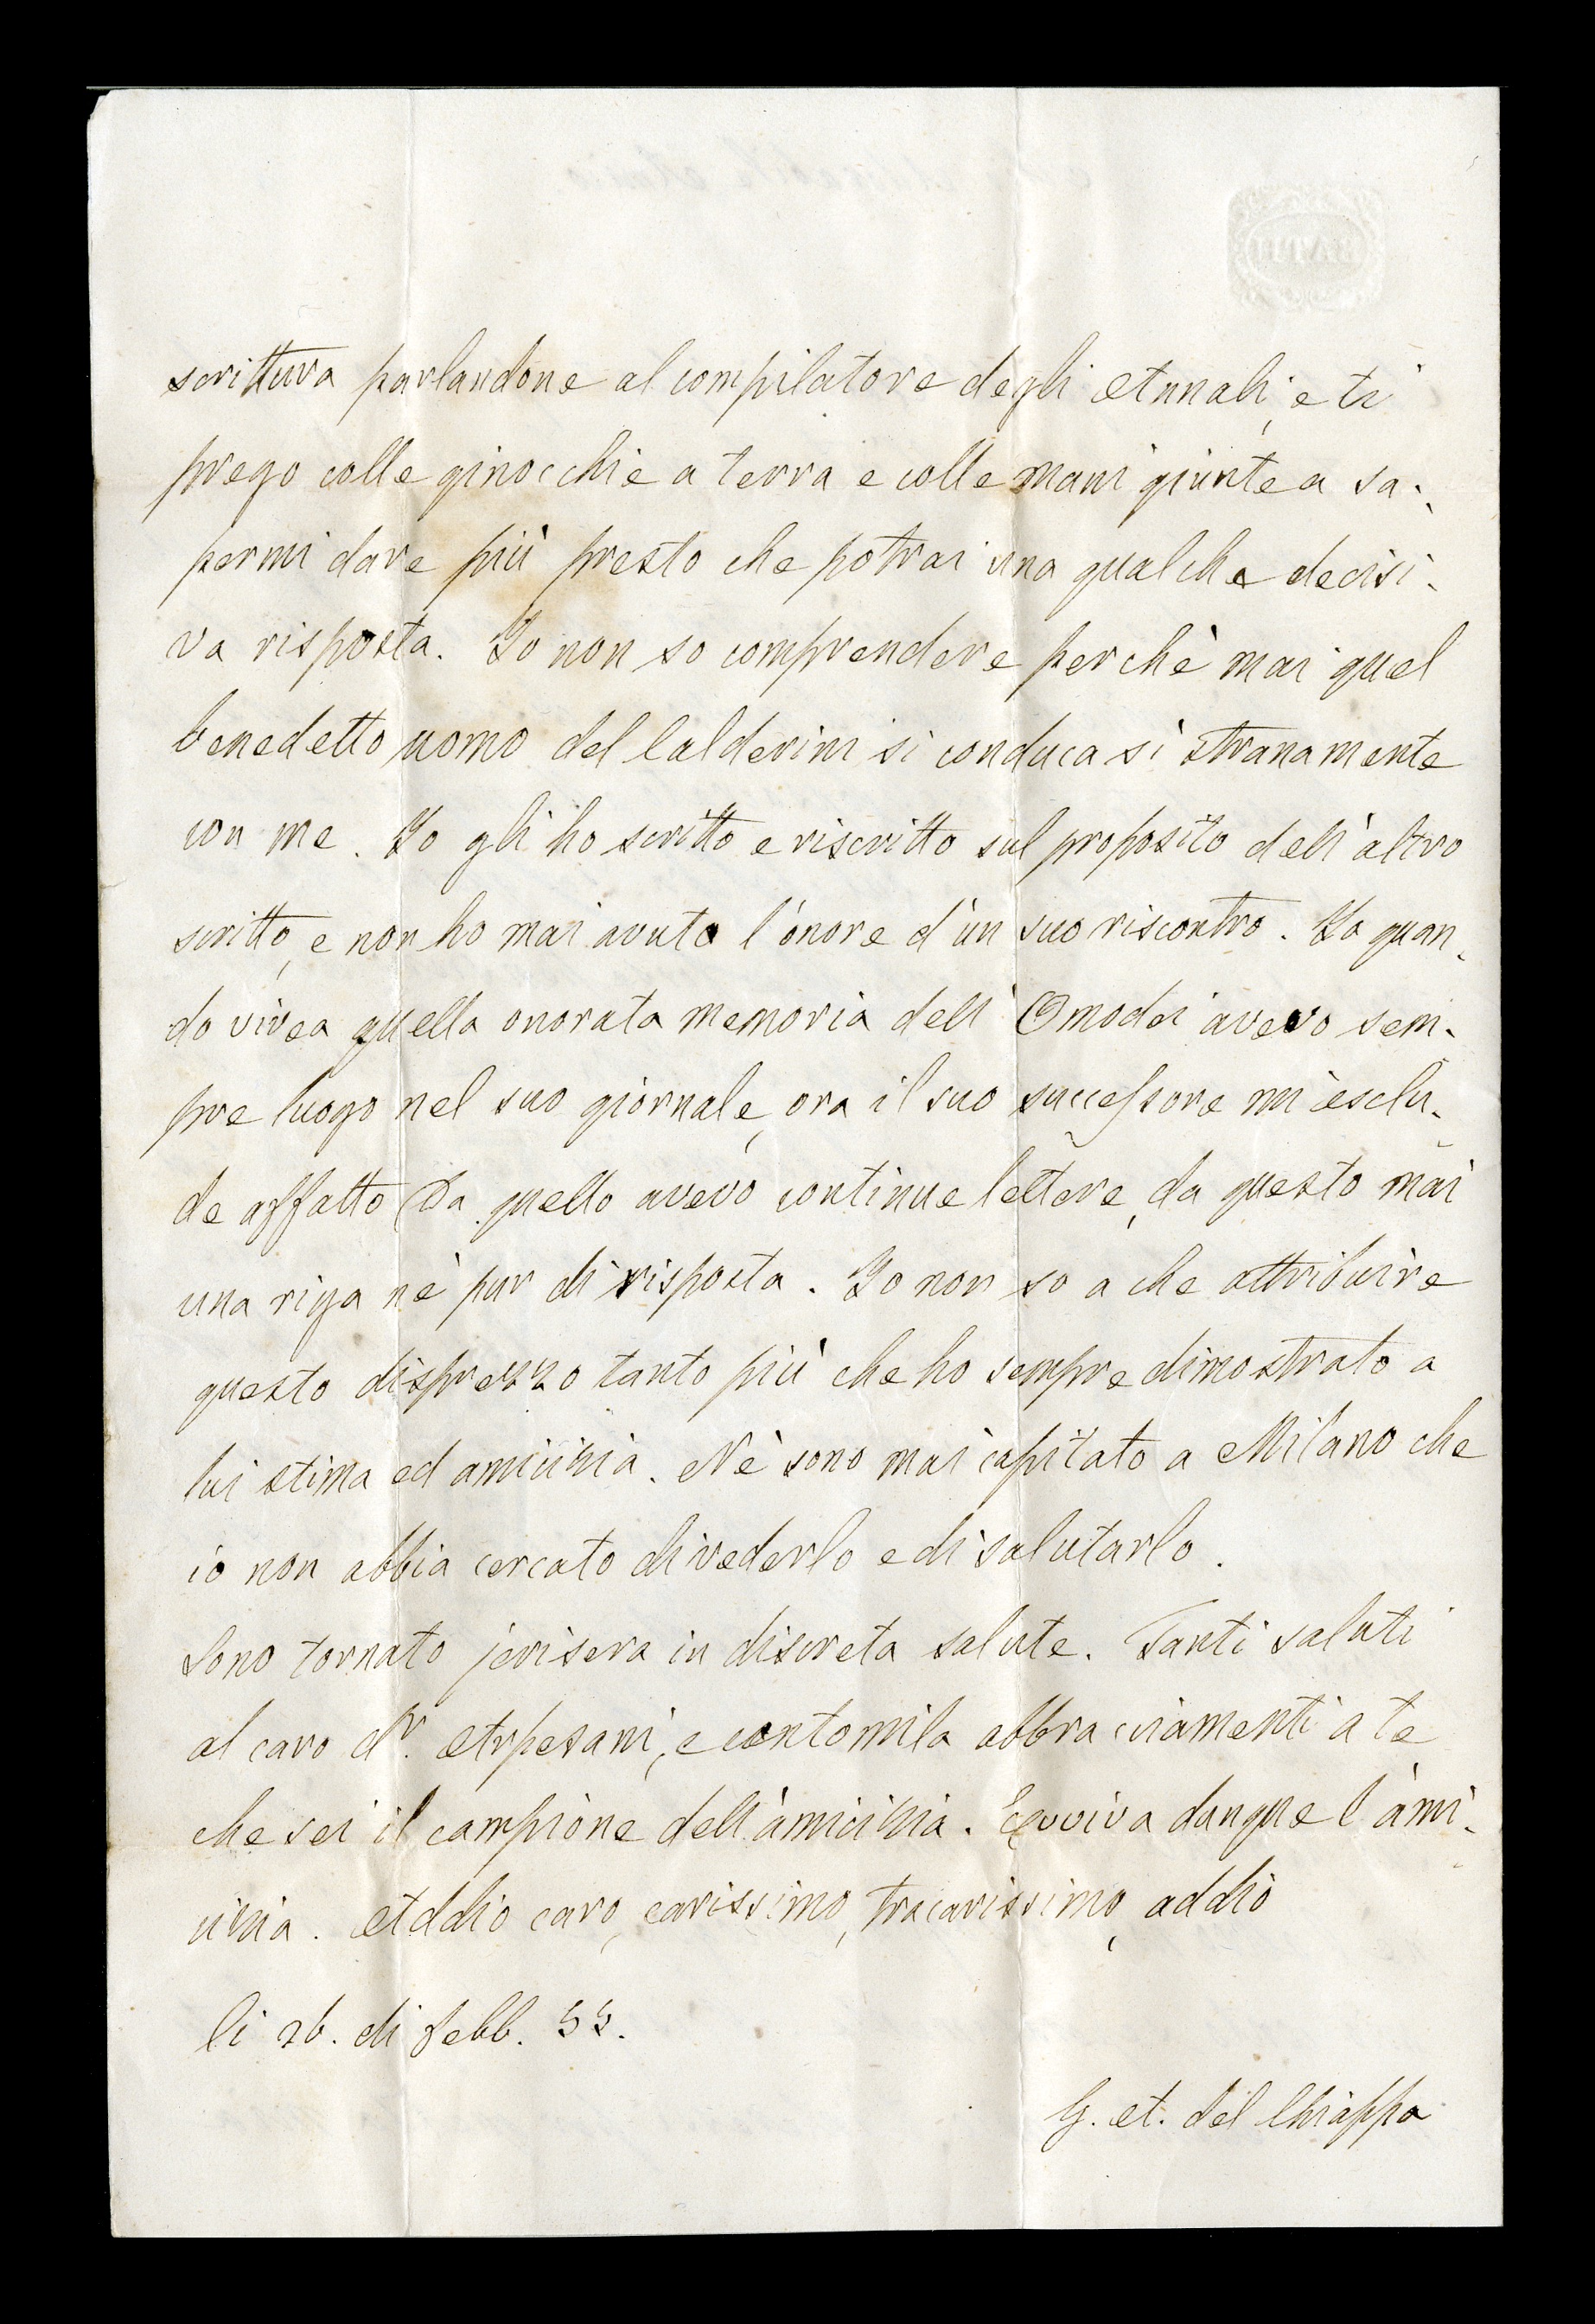 scrittura parlandone al compilatore degli Annali, e ti
prego colle ginocchie a terra e colle mani giunte a sa-
permi dare più presto che potrai una qualche decisi-
va risposta. Io non so comprendere perchè mai quel
benedetto uomo del Calderini si conduca sì stranamente
con me. Io gli ho scritto e riscritto sul proposito dell'altro
scritto, e non ho mai avuto l'onore d'un suo riscontro. Io quan-
do vivea quella onorata memoria dell'Omodei avevo sem-
pre luogo nel suo giornale, ora il suo successore mi esclu-
de affatto. Da quello avevo continue lettere, da questo mai
una riga nè pur di risposta. Io non so a che attribuire
questo disprezzo tanto più che ho sempre dimostrato a
lui stima ed amicizia. Nè sono mai capitato a Milano che
io non abbia cercato di vederlo e di salutarlo.
Sono tornato jerisera in discreta salute. Tanti saluti
al caro dr. Arpesani, e centomila abbracciamenti a te
che sei il campione dell'amicizia. Evviva dunque l'ami-
cizia. Addio caro, carissimo, tracarissimo, addio
li 26. di febb.
G. A. Del Chiappa
BATH